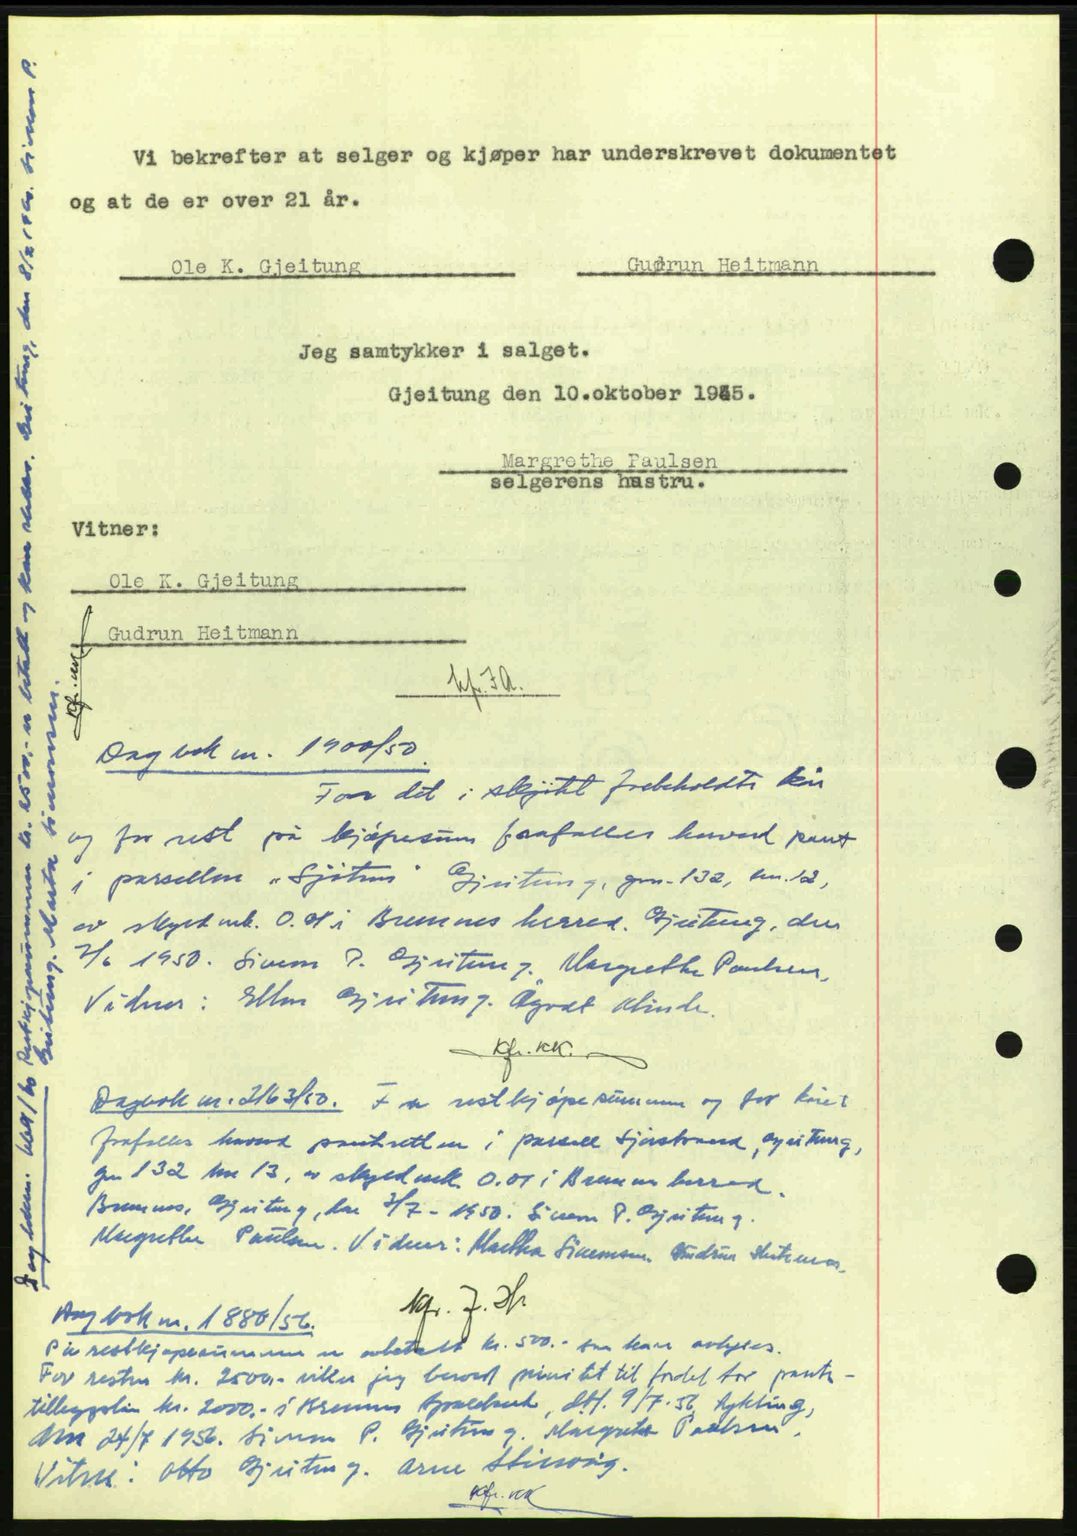 Vi bekrefter at selger og kjøper har underskrevet dokumentet
og at de er over 21 år.
Ole K. Gjeitung Gudrun Heitmann
Jeg samtykker i salget.
Gjeitung den 10.oktober 1945.
Margrethe Paulsen
selgerens hustru.
Vitner:
Ole K. Gjeitung
Gudrun Heitmann
Kfr. J.A.
Dagbok nr. 1900/50.
For det i skjötet forbeholdte kår
og for rest på kjöpesum frafalles herved pant
i parsellen "Sjötun" Gjeitung, gnr. 132, bnr. 12,
av skyld mk. 0.01 i Bremnes herred. Gjeitung, den
2/6 1950. Sivern P. Gjeitung. Margrethe Paulsen.
Vidner: Gjeitung.
Kfr. KK.
Dagbok nr. 2163/50. For restkjöpesummen og for kåret
frafalles herved panteretten i parsell Sjöstrand, Gjeitung,
gnr 132 bnr 13, av skyld mk. 0.01 i Bremnes herred.
Bremnes, Gjeitung, den 3/7 - 1950. Sivern P. Gjeitung.
Margrethe Paulsen. Vidner: Martha Simonsen. Gudrun Heitmann.
Kfr.
Dagbok nr. 1880/56.
På restkjøpesummen er avbetalt kr. 500.- som kan avlyses.
For resten kr. 2500.- viker jeg herved prioritet til fordel for pante-
tillegglån kr. 2000.- i Bremnes Sparebank, dat. 9/7-56, Lykling,
den 24/7 1956. Sivern P. Gjeitung. Margrethe Paulsen.
Vitne: Otto Gjeitung. Arne
Kfr. KK
Restkjøpesummen kr. 2500.- er betalt og kan slettes. Gjeitung, den 8/2 1960. Sivern P.
Gjeitung. Marta Simonsen.